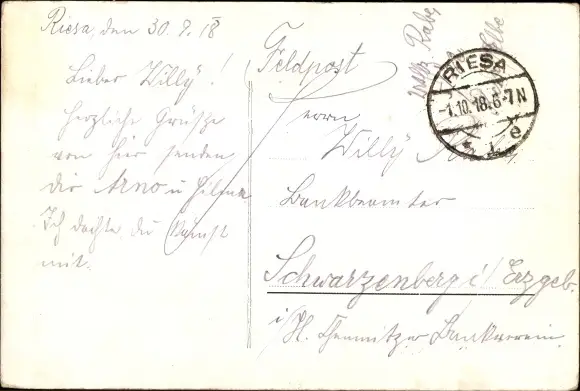 Riesa, den 30.9.18
Lieber Willy!
Herzliche Grüsze
von hier senden
dir Arno u.
Ich dachte du kämst
mit.
Feldpost
Herrn
Willy
Bankbeamter
Schwarzenberg i/ Erzgeb.
i/H. Chemnitzer Bankverein
Willy Rabe
Elbe
RIESA
-1.10.18.6-7N